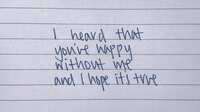 I heard that
you're happy
without me
and I hope it's true